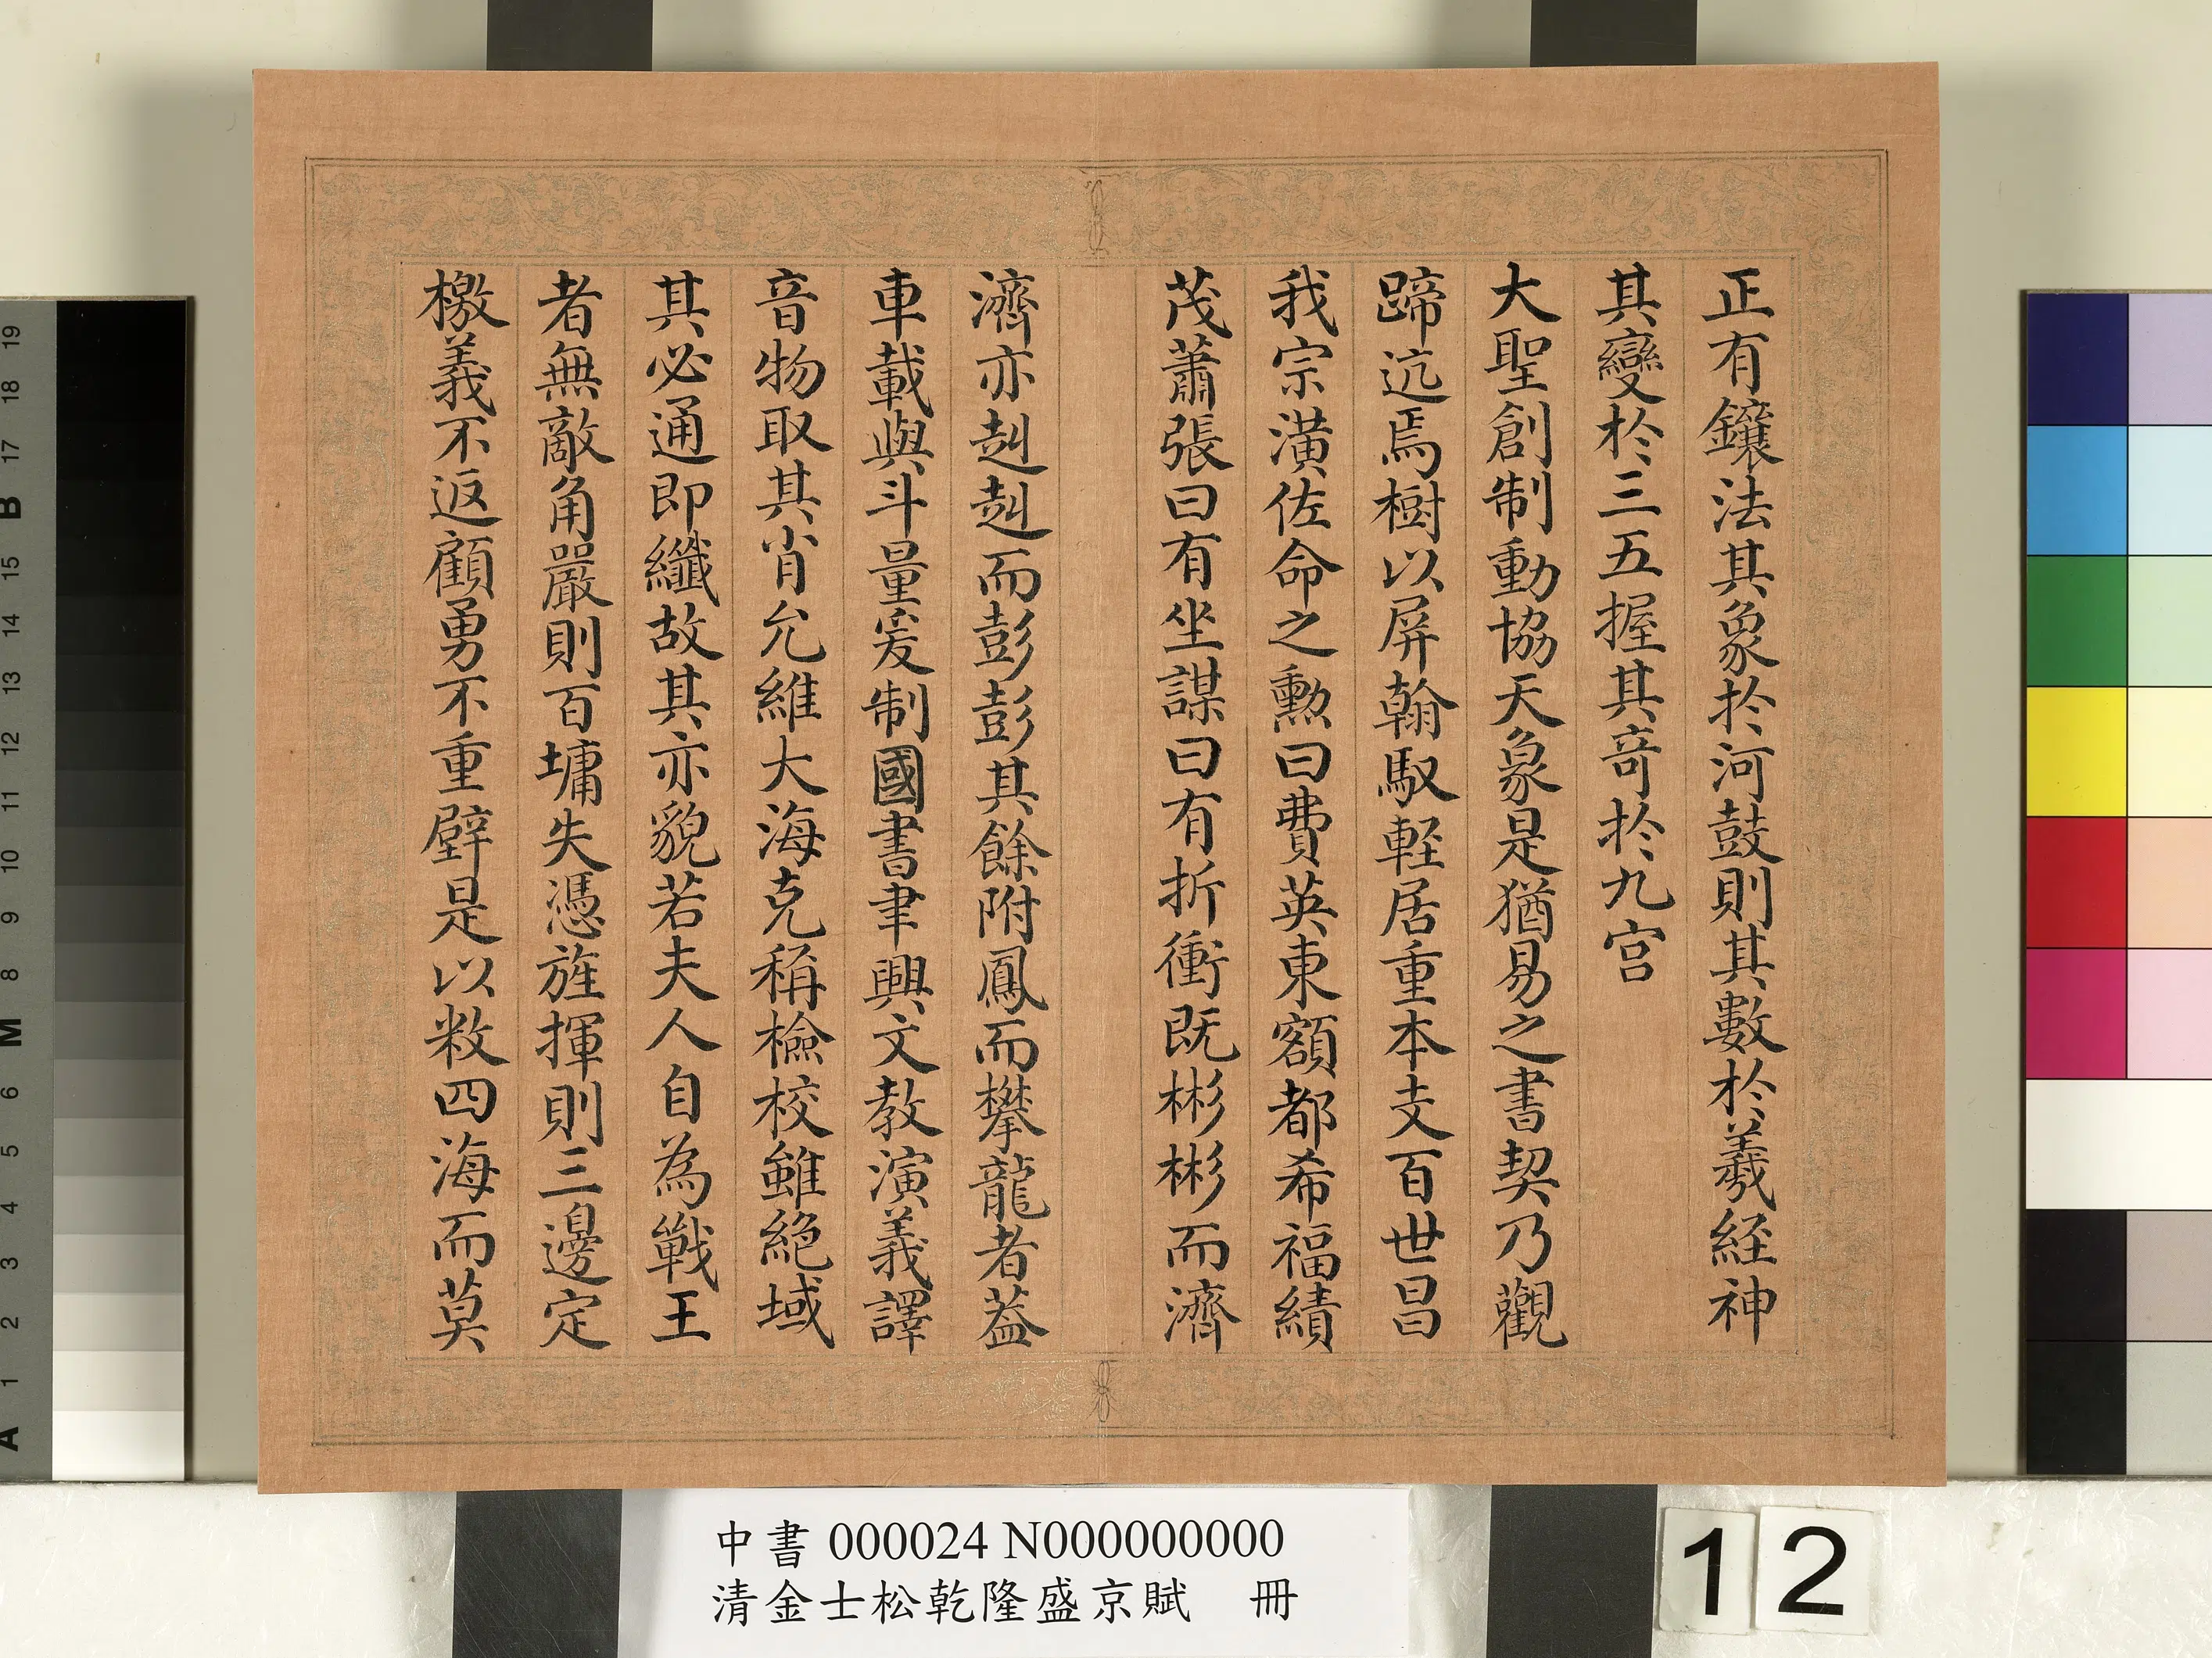 正有鑲法其象於河鼓則其數於羲經神
其變於三五握其竒於九宮
大聖創制動協天象是猶易之書契乃觀
蹄迒焉樹以屏翰馭輕居重本支百世昌
我宗潢佐命之勲曰費英東額都希福績
茂蕭張曰有坐謀曰有折衝既彬彬而濟
濟亦赳赳而彭彭其餘附鳳而攀龍者葢
車載與斗量爰制國書聿興文教演義譯
音物取其肖允維大海克稱檢校雖絕域
其必通即纖故其亦貌若夫人自為戰王
者無敵角嚴則百墉失憑旌揮則三邊定
檄義不返顧勇不重壁是以敉四海而莫
中書 000024 N000000000
清金士松乾隆盛京賦 冊
12
19
18
17
B
15
14
13
12
11
10
9
8
M
6
5
4
3
2
1
A